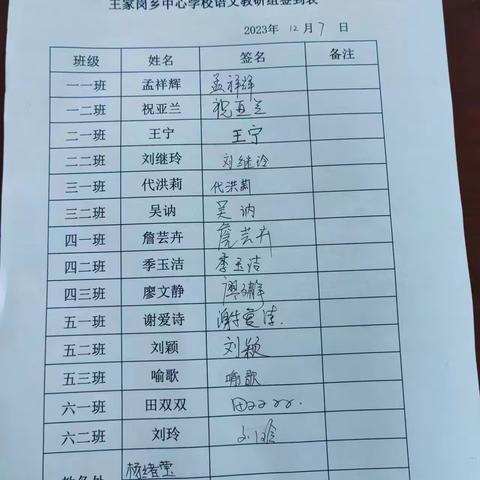 王家岗乡中心学校语文教研组签到表
2023年 12月 7 日
班级 姓名 签名 备注
一一班 孟祥辉 孟祥辉
一二班 祝亚兰 祝亚兰
二一班 王宁 王宁
二二班 刘继玲 刘继玲
三一班 代洪莉 代洪莉
三二班 吴讷 吴讷
四一班 詹芸卉 詹芸卉
四二班 季玉洁 季玉洁
四三班 廖文静 廖文静
五一班 谢爱诗 谢爱诗.
五二班 刘颖 刘颖
五三班 喻歌 喻歌
六一班 田双双 田双双.
六二班 刘玲 刘玲
教务处 杨绪莹